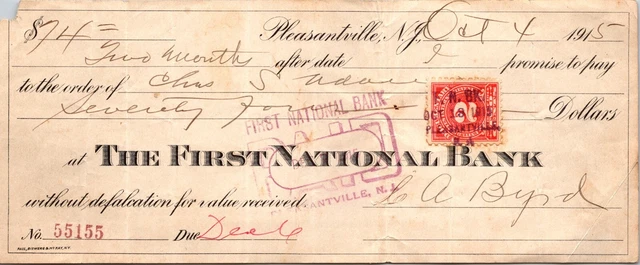 $74= Pleasantville, N.J. Oct 4 1915
Two Months after date I promise to pay
to the order of Chas S
Seventy Four Dollars
FIRST NATIONAL BANK
PAID
PLEASANTVILLE, N.J.
PLEASANTVILLE
at THE FIRST NATIONAL BANK
without defalcation for value received. C A Byrd
No. 55155 Due Dec 4